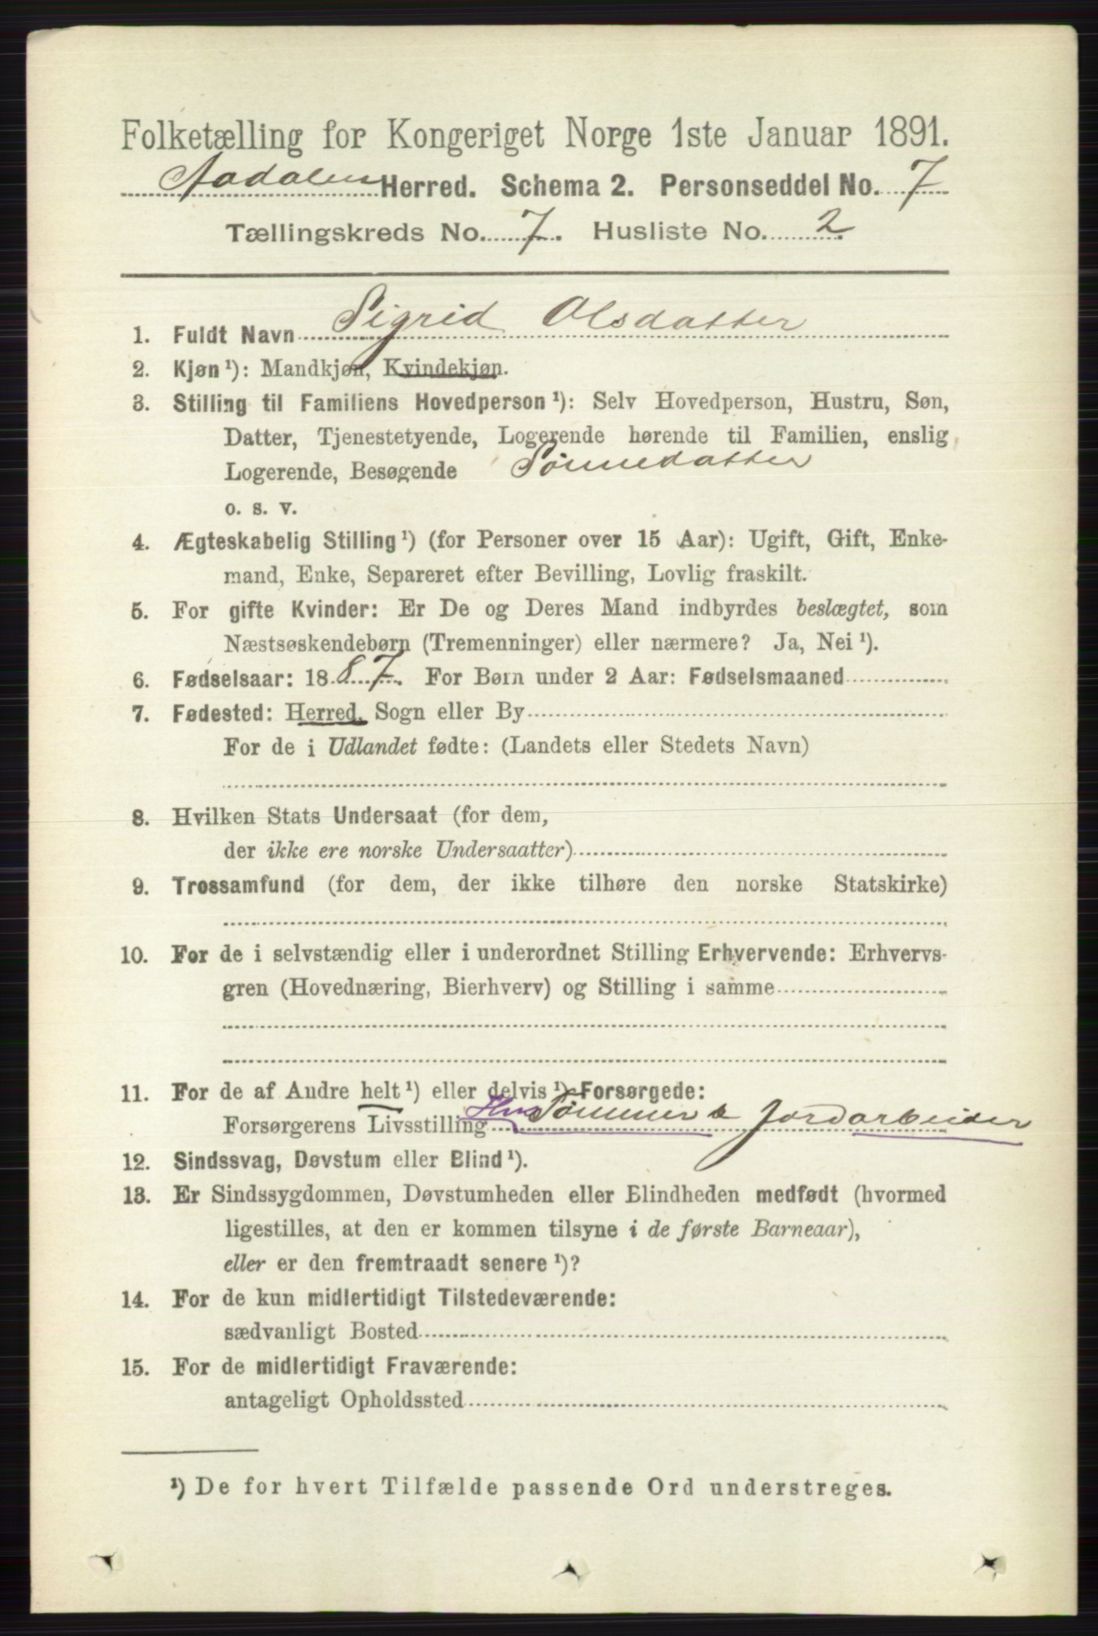 Folketælling for Kongeriget Norge 1ste Januar 1891.
Aadalen Herred. Schema 2. Personseddel No. 7
Tællingskreds No. 7. Husliste No. 2.
1. Fuldt Navn Sigrid Olsdatter
2. Kjøn ¹): Mandkjøn, Kvindekjøn.
3. Stilling til Familiens Hovedperson ¹): Selv Hovedperson, Hustru, Søn,
Datter, Tjenestetyende, Logerende hørende til Familien, enslig
Logerende, Besøgende Sønnedatter
o. s. v.
4. Ægteskabelig Stilling ¹) (for Personer over 15 Aar): Ugift, Gift, Enke-
mand, Enke, Separeret efter Bevilling, Lovlig fraskilt.
5. For gifte Kvinder: Er De og Deres Mand indbyrdes beslægtet, som
Næstsøskendebørn (Tremenninger) eller nærmere? Ja, Nei ¹).
6. Fødselsaar: 1887. For Børn under 2 Aar: Fødselsmaaned
7. Fødested: Herred, Sogn eller By
For de i Udlandet fødte: (Landets eller Stedets Navn)
8. Hvilken Stats Undersaat (for dem,
der ikke ere norske Undersaatter)
9. Trossamfund (for dem, der ikke tilhøre den norske Statskirke)
10. For de i selvstændig eller i underordnet Stilling Erhvervende: Erhvervs-
gren (Hovednæring, Bierhverv) og Stilling i samme
11. For de af Andre helt ¹) eller delvis ¹) Forsørgede:
Forsørgerens Livsstilling Hus Tømmer & Jordarbeider
12. Sindssvag, Døvstum eller Blind ¹).
13. Er Sindssygdommen, Døvstumheden eller Blindheden medfødt (hvormed
ligestilles, at den er kommen tilsyne i de første Barneaar),
eller er den fremtraadt senere ¹)?
14. For de kun midlertidigt Tilstedeværende:
sædvanligt Bosted
15. For de midlertidigt Fraværende:
antageligt Opholdssted
¹) De for hvert Tilfælde passende Ord understreges.